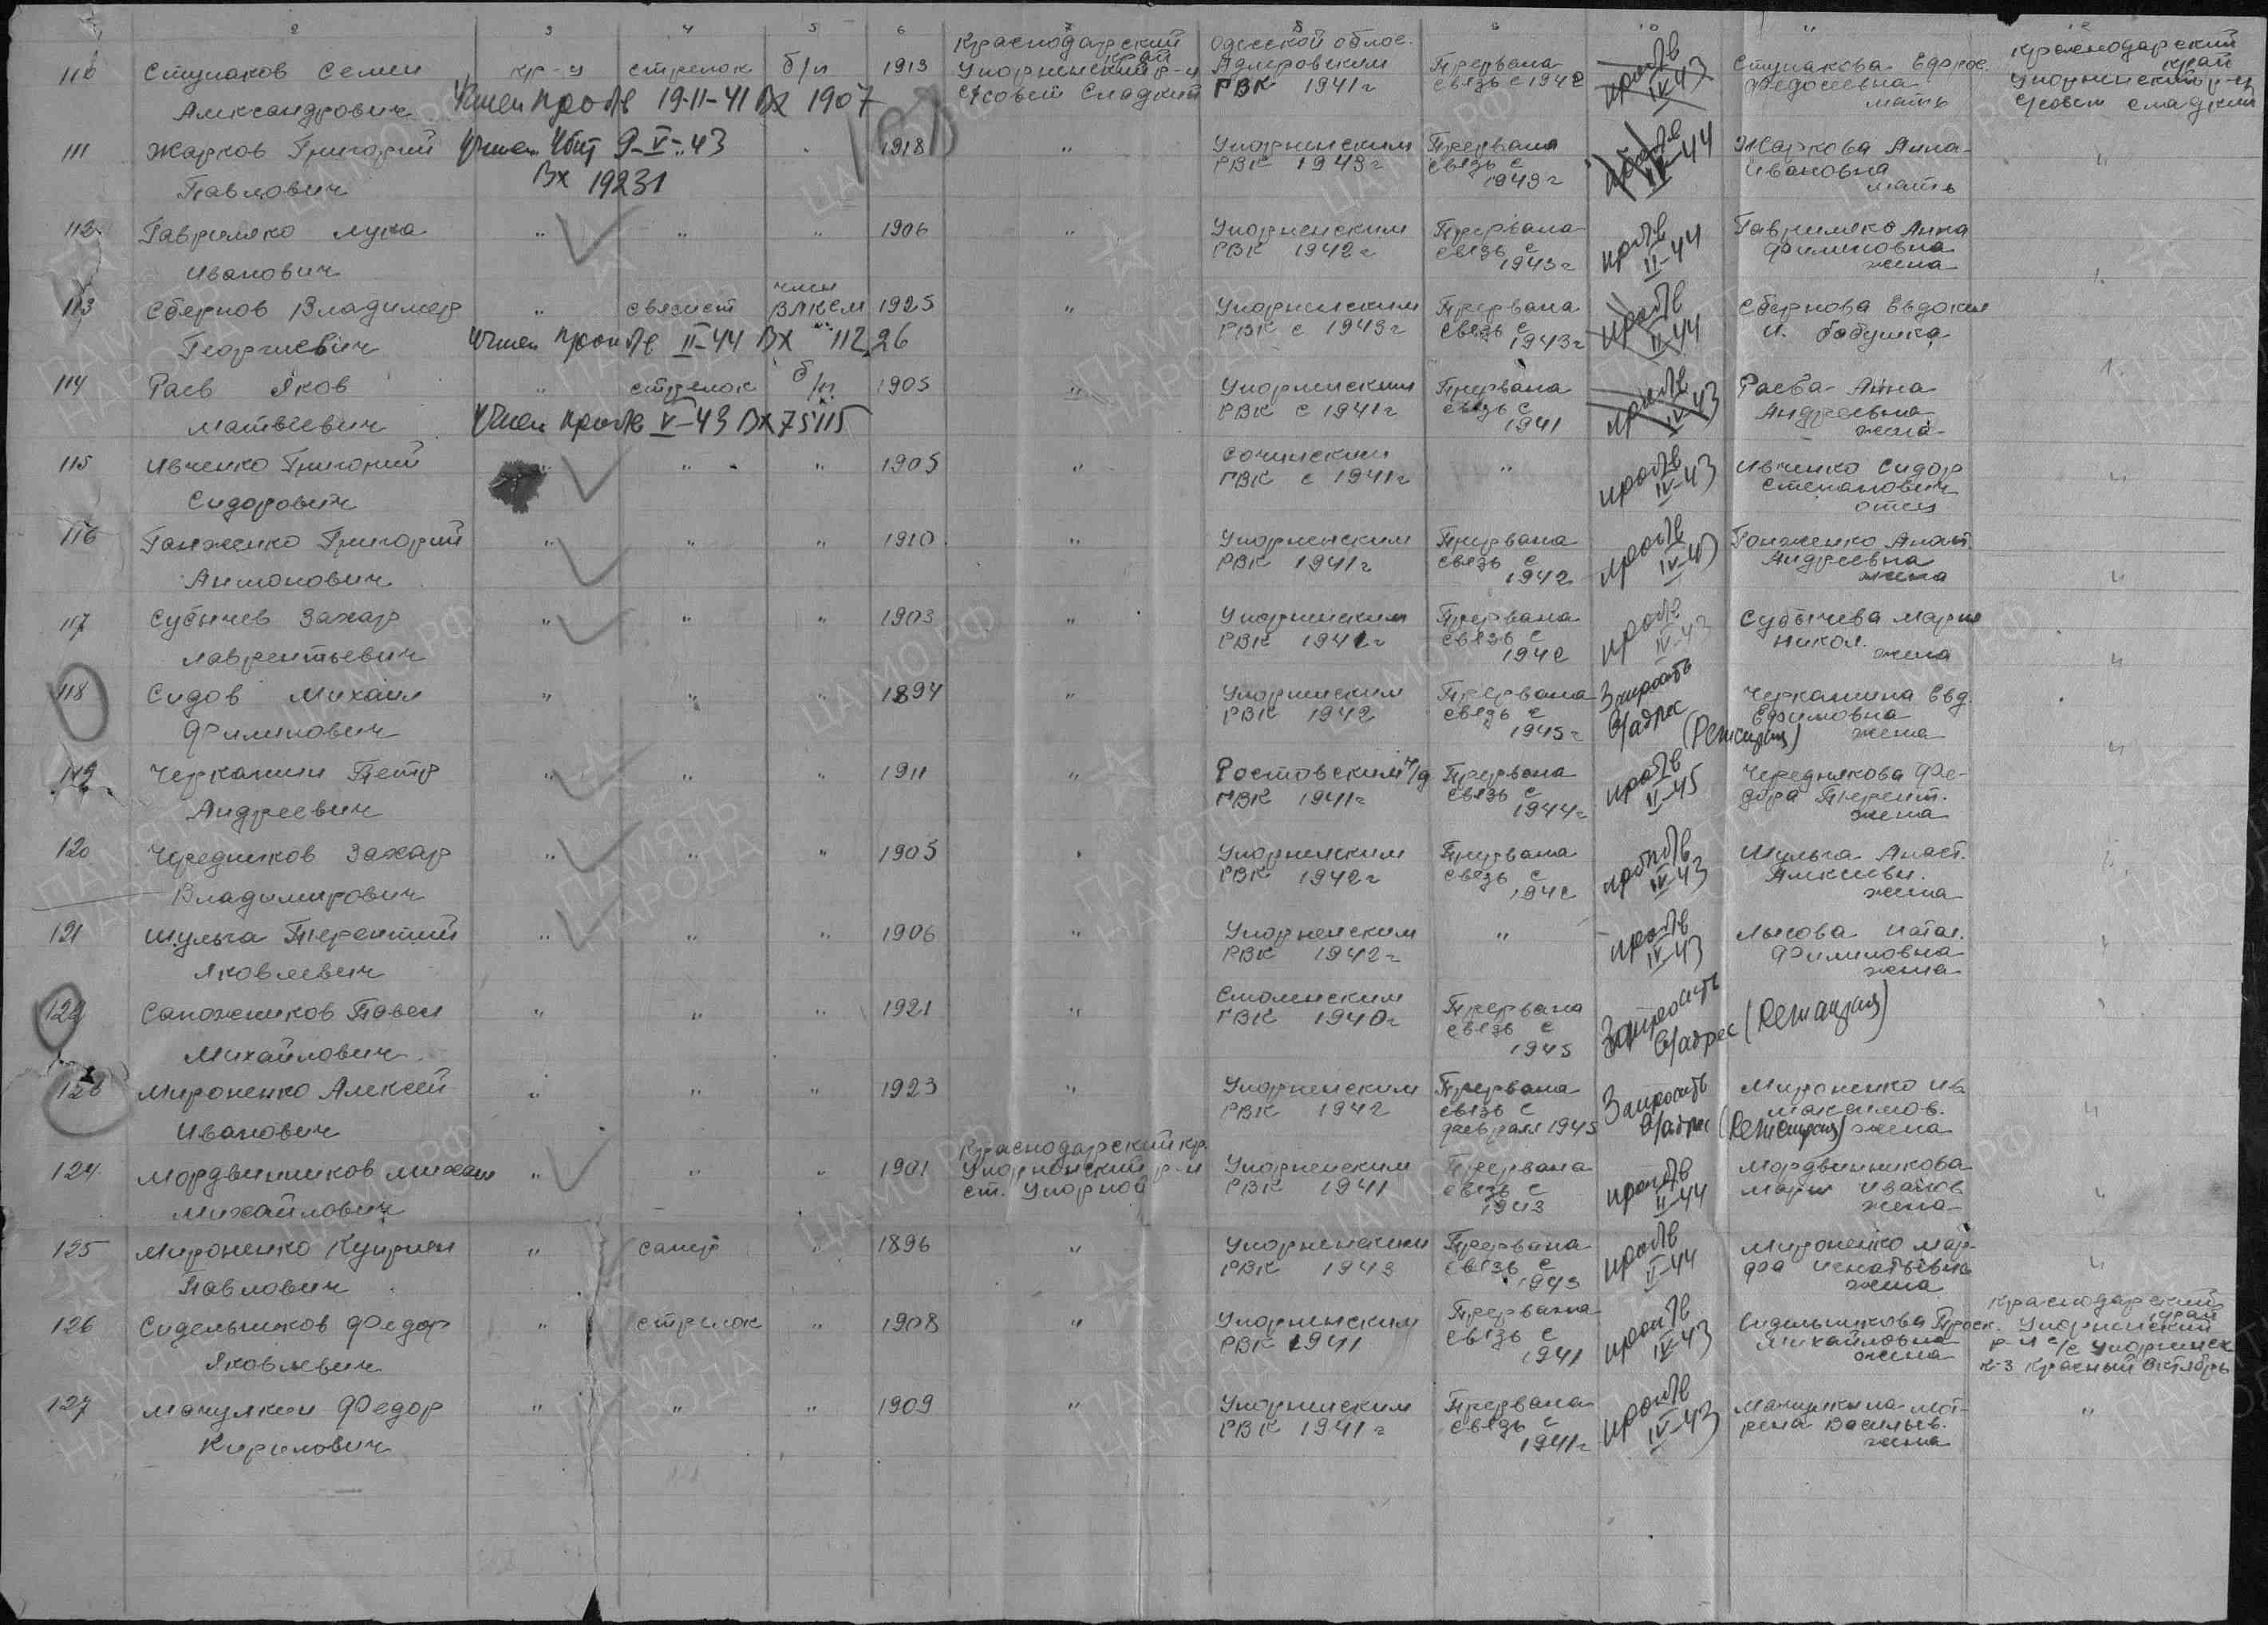 2 3 4 5 6 7 8 9 10 11 12
110 Ступаков Семен кр-ц стрелок б/п 1913 Краснодарский край Упорненский р-н С/совет Сладкий Одесской облас. РВК 1941 г Прервана связь с 1942 проп б/в IV-43 Ступакова Федосеевна мать Краснодарский край Упорненский р-н С/совет Сладкий
Александрович Учтен проп б/в 19-11-41 Вх 1907
111 Жарков Григорий Учтен Убит 9-V-43 " 1918 " Упорненским РВК 1943 г Прервана связь с 1943 г проп б/в IV-44 Жаркова Анна Ивановна мать "
Павлович Вх 19231
112 Гавриляко Лука " " " 1906 " Упорненским РВК 1942 г Прервана связь с 1943 г проп б/в II-44 Гавриляко Анна Филиповна жена "
Иванович
113 Сбернов Владимер " связист член ВЛКСМ 1925 " Упорненским РВК с 1943 г Прервана связь с 1943 г проп б/в II-44 Сбернова Евдокия И. бабушка
Георгиевич Учтен проп б/в II-44 Вх 11226
114 Раев Яков " стрелок б/п 1905 " Упорненским РВК с 1941 г Прервана связь с 1941 проп б/в IV-43 Раева Анна Андреевна жена "
Матвеевич Учтен проп б/в V-43 Вх 75115
115 Ивченко Григорий " " " 1905 " Сочинским ГВК с 1941 г " проп б/в IV-43 Ивченко Сидор Степанович отец "
Сидорович
116 Ганженко Григорий " " " 1910 " Упорненским РВК 1941 г Прервана связь с 1942 проп б/в IV-43 Ганженко Анаст. Андреевна жена "
Антонович
117 Субычев Захар " " " 1903 " Упорненским РВК 1942 г Прервана связь с 1942 проп б/в IV-43 Субычева Мария Никол. жена "
Лаврентьевич
118 Сидов Михаил " " " 1894 " Упорненским РВК 1942 Прервана связь с 1945 г Запросить в/адрес Черкашина Евд. Ефимовна жена "
Филипович
119 Черкашин Петр " " " 1911 " Ростовским н/Д ГВК 1941 г Прервана связь с 1944 г проп б/в II-45 Череднякова Федора Терент. жена
Андреевич
120 Чередников Захар " " " 1905 " Упорненским РВК 1942 г Прервана связь с 1942 проп б/в IV-43 Шульга Анаст. Алексеевн. жена "
Владимирович
121 Шульга Терентий " " " 1906 " Упорненским РВК 1942 г " проп б/в IV-43 Лысова Натал. Филиповна жена "
Яковлевич
122 Сапожников Павел " " " 1921 " Смоленским ГВК 1940 г Прервана связь с 1945 Запросить в/адрес "
Михайлович
123 Мироненко Алексей " " " 1923 " Упорненским РВК 1942 Прервана связь с февраля 1945 Запросить в/адрес Мироненко Ив. Максимов. жена "
Иванович
124 Мордвинников Михаил " " " 1901 Краснодарский кр. Упорненский р-н ст. Упорной Упорненским РВК 1941 Прервана связь с 1943 проп б/в II-44 Мордвинникова Мария Иванов жена "
Михайлович
125 Мироненко Куприян " сапер " 1896 " Упорненским РВК 1943 Прервана связь с 1943 проп б/в II-44 Мироненко Марфа Игнатьевна жена "
Павлович
126 Сидельников Федор " стрелок " 1908 " Упорненским РВК 1941 Прервана связь с 1941 проп б/в IV-43 Сидельникова Праск. Михайловна жена Краснодарский край Упорненский р-н с/с Упорненск к-з Красный Октябрь
Яковлевич
127 Манулкин Федор " " " 1909 " Упорненским РВК 1941 г Прервана связь с 1941 г проп б/в IV-43 Манулкина Мотрена Васильев. жена "
Кирилович